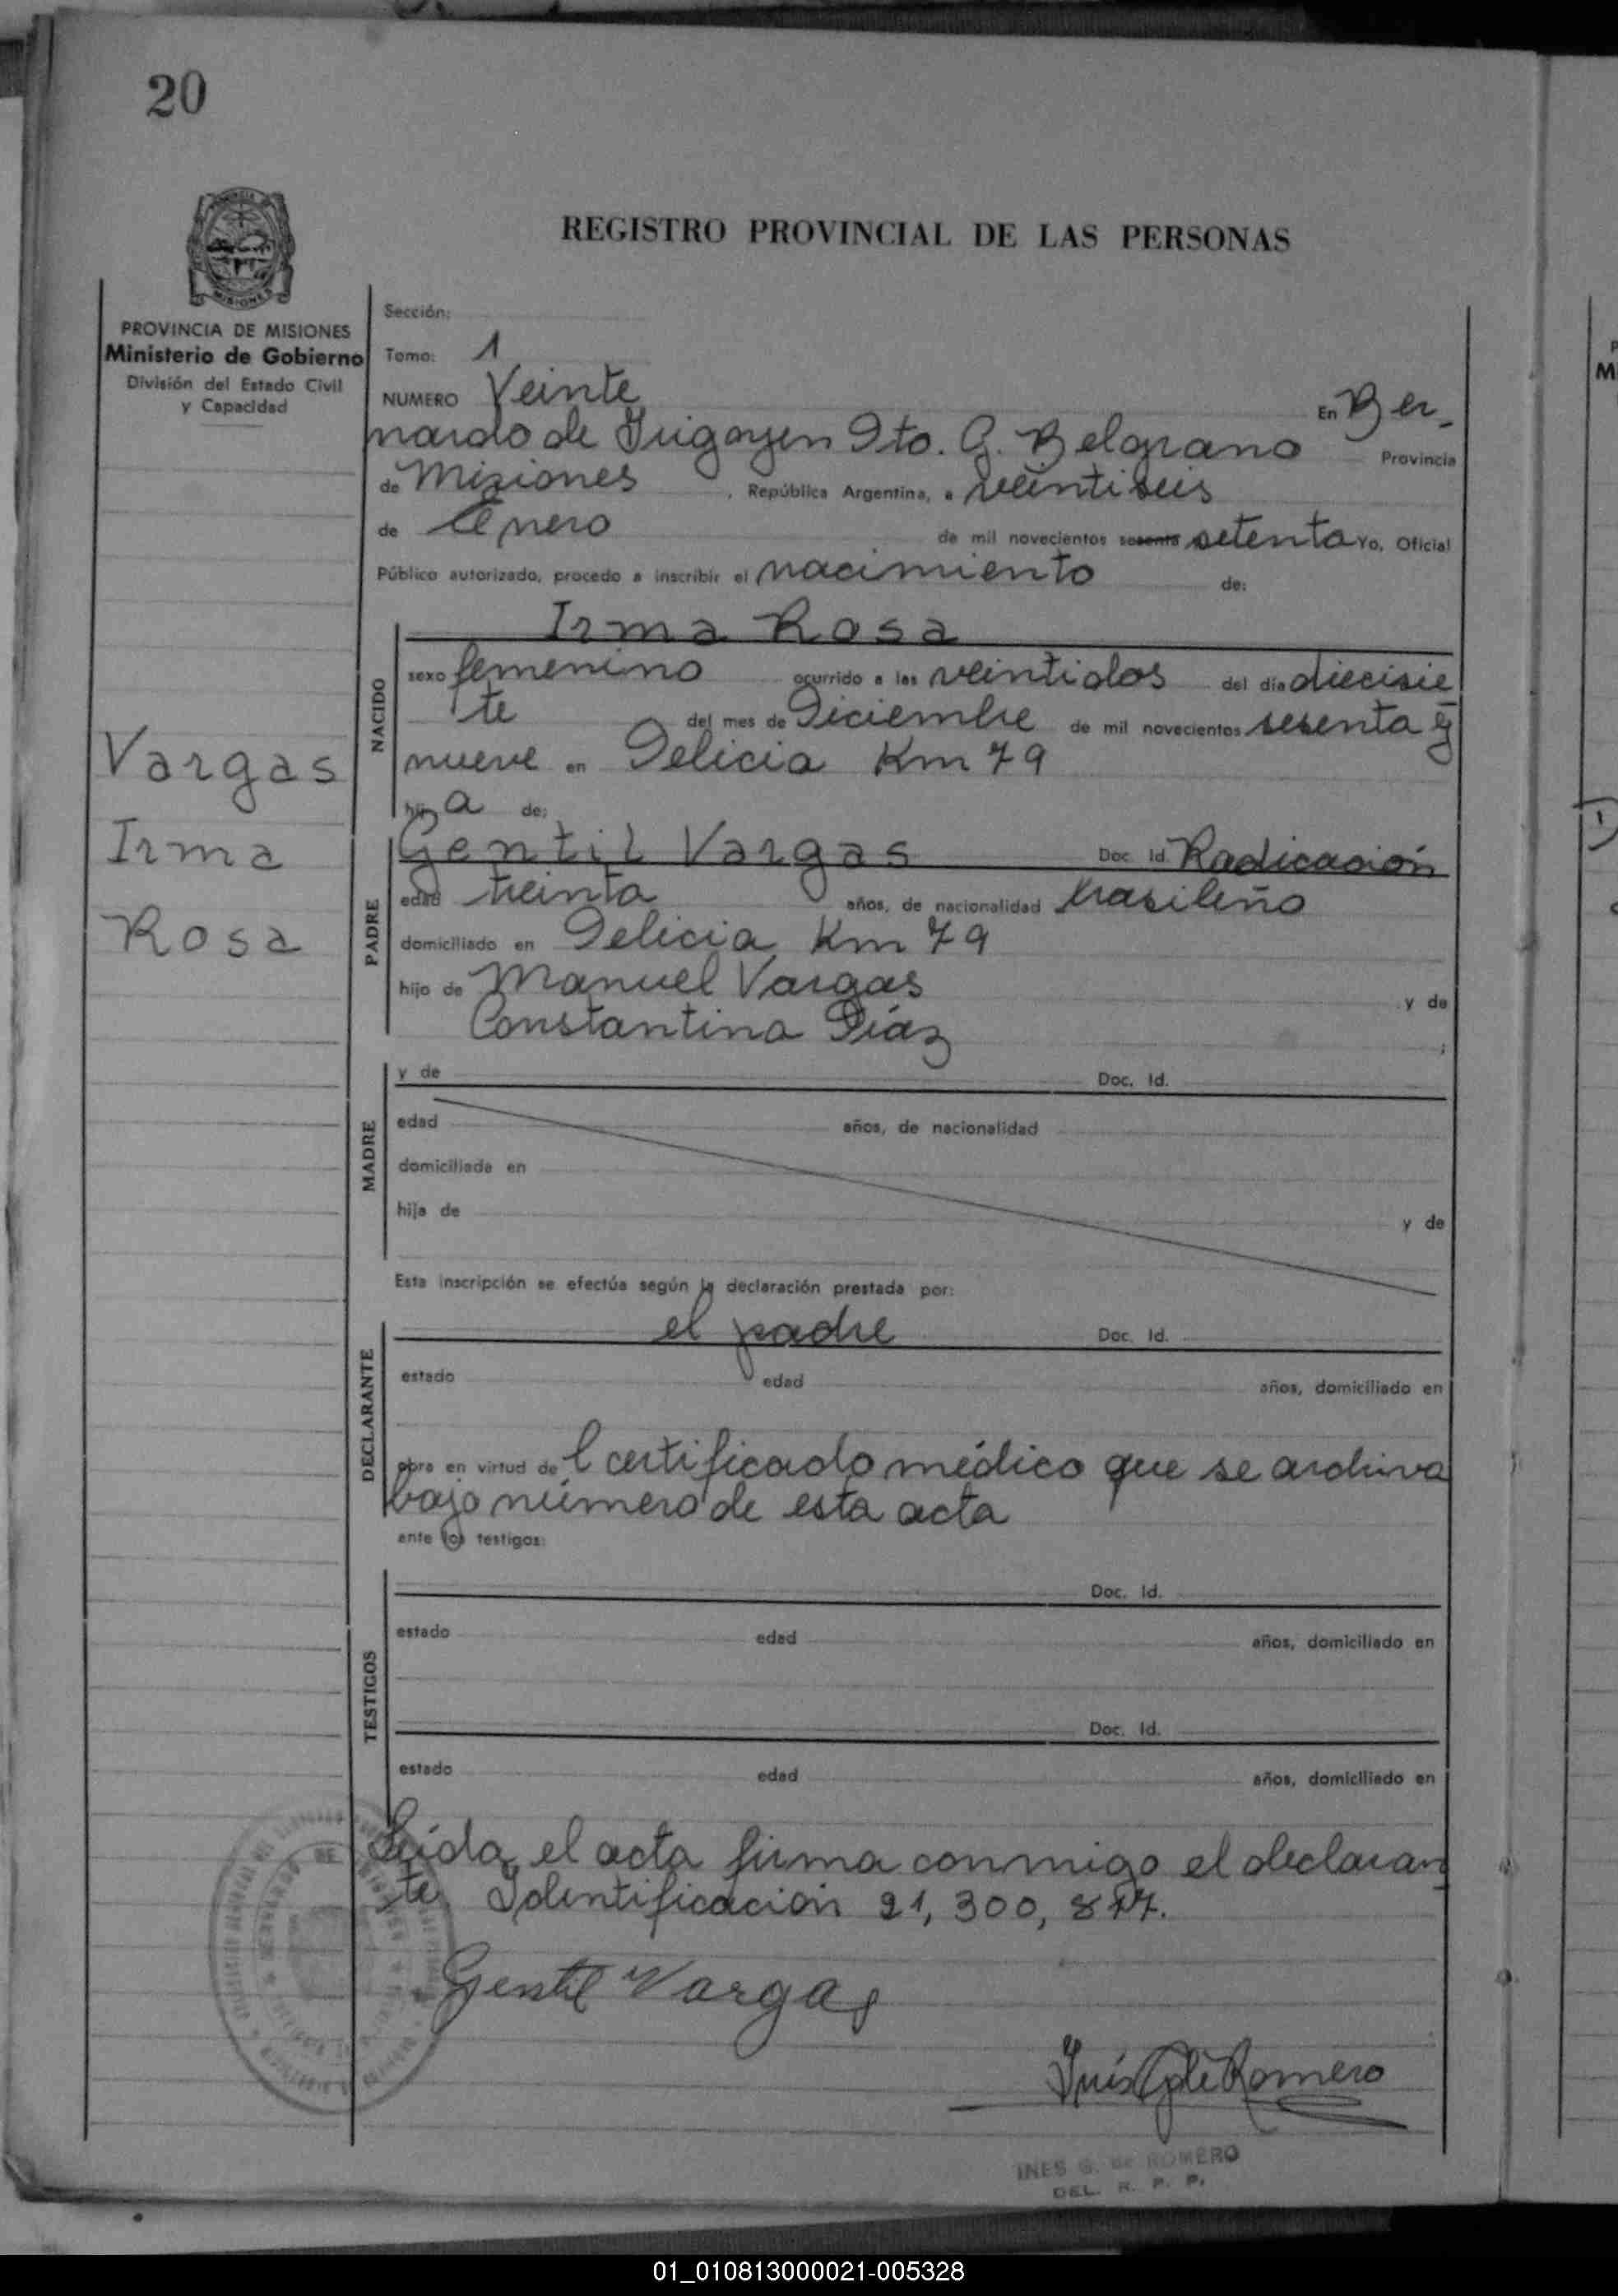 20
REGISTRO PROVINCIAL DE LAS PERSONAS
PROVINCIA DE MISIONES
Ministerio de Gobierno
División del Estado Civil
y Capacidad
Sección:
Tomo: 1
NUMERO Veinte En Ber-
nardo de Irigoyen Dto. G. Belgrano Provincia
de Misiones, República Argentina, a veintiseis
de Enero de mil novecientos sesenta setenta Yo, Oficial
Público autorizado, procedo a inscribir el nacimiento de:
NACIDO
Irma Rosa
sexo femenino ocurrido a las veintidos del día diecisie
te del mes de Diciembre de mil novecientos sesenta y
nueve en Delicia Km 79
hija de:
Vargas
Irma
Rosa
PADRE
Gentil Vargas Doc. Id. Radicación
edad treinta años, de nacionalidad brasileño
domiciliado en Delicia Km 79
hijo de Manuel Vargas y de
Constantina Díaz ;
MADRE
y de Doc. Id.
edad años, de nacionalidad
domiciliada en
hija de y de
Esta inscripción se efectúa según la declaración prestada por:
DECLARANTE
el padre Doc. Id.
estado edad años, domiciliado en
obra en virtud del certificado médico que se archiva
bajo número de esta acta
ante los testigos:
TESTIGOS
Doc. Id.
estado edad años, domiciliado en
Doc. Id.
estado edad años, domiciliado en
Leída el acta firma conmigo el declaran
te. Identificación 21,300,
Gentil Vargas
Inés G. de Romero
INES G. de ROMERO
DEL. R. P. P.
01_010813000021-005328